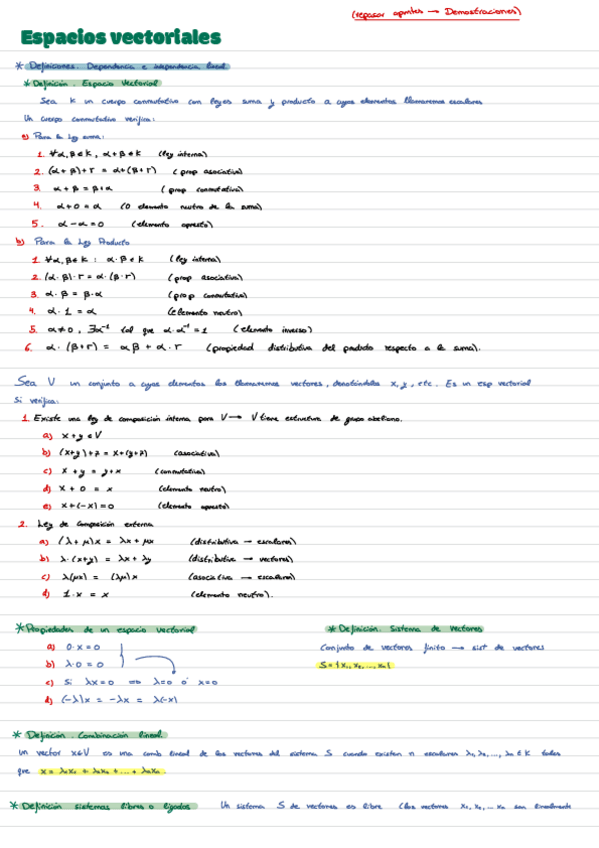 (repasar apuntes → Demostraciones)
Espacios vectoriales
* Definiciones. Dependencia e independencia lineal
* Definición. Espacio Vectorial
Sea K un cuerpo conmutativo con leyes suma y producto a cuyos elementos llamaremos escalares
Un cuerpo conmutativo verifica:
a) Para la ley suma:
1. ∀α,β∈K, α+β∈K (ley interna)
2. (α+β)+γ = α+(β+γ) (prop asociativa)
3. α+β = β+α (prop conmutativa)
4. α+0 = α (0 elemento neutro de la suma)
5. α-α = 0 (elemento opuesto)
b) Para la Ley Producto
1. ∀α,β∈K : α·β∈K (ley interna)
2. (α·β)·γ = α·(β·γ) (prop asociativa)
3. α·β = β·α (prop conmutativa)
4. α·1 = α (elemento neutro)
5. α≠0, ∃α⁻¹ tal que α·α⁻¹ = 1 (elemento inverso)
6. α·(β+γ) = αβ + α·γ (propiedad distributiva del producto respecto a la suma).
Sea V un conjunto a cuyos elementos los llamaremos vectores, denotándolos x, y, etc. Es un esp vectorial
si verifica:
1. Existe una ley de composición interna para V → V tiene estructura de grupo abeliano.
a) x+y∈V
b) (x+y)+z = x+(y+z) (asociativa)
c) x+y = y+x (conmutativa)
d) x+0 = x (elemento neutro)
e) x+(-x) = 0 (elemento opuesto)
2. Ley de composición externa
a) (λ+μ)x = λx + μx (distributiva → escalares)
b) λ·(x+y) = λx + λy (distributiva → vectores)
c) λ(μx) = (λμ)x (asociativa → escalares)
d) 1·x = x (elemento neutro).
* Propiedades de un espacio vectorial
a) 0·x = 0
b) λ·0 = 0
c) Si λx = 0 ⇒ λ=0 ó x=0
d) (-λ)x = -λx = λ(-x)
* Definición. Sistema de vectores
Conjunto de vectores finito → sist de vectores
S = {x₁, x₂, ..., xₙ}
* Definición. Combinación lineal.
Un vector x∈V es una comb lineal de los vectores del sistema S cuando existan n escalares λ₁, λ₂, ..., λₙ ∈ K tales
que x = λ₁x₁ + λ₂x₂ + ... + λₙxₙ.
* Definición sistemas libres o ligados Un sistema S de vectores es libre (los vectores x₁, x₂, ... xₙ son linealmente